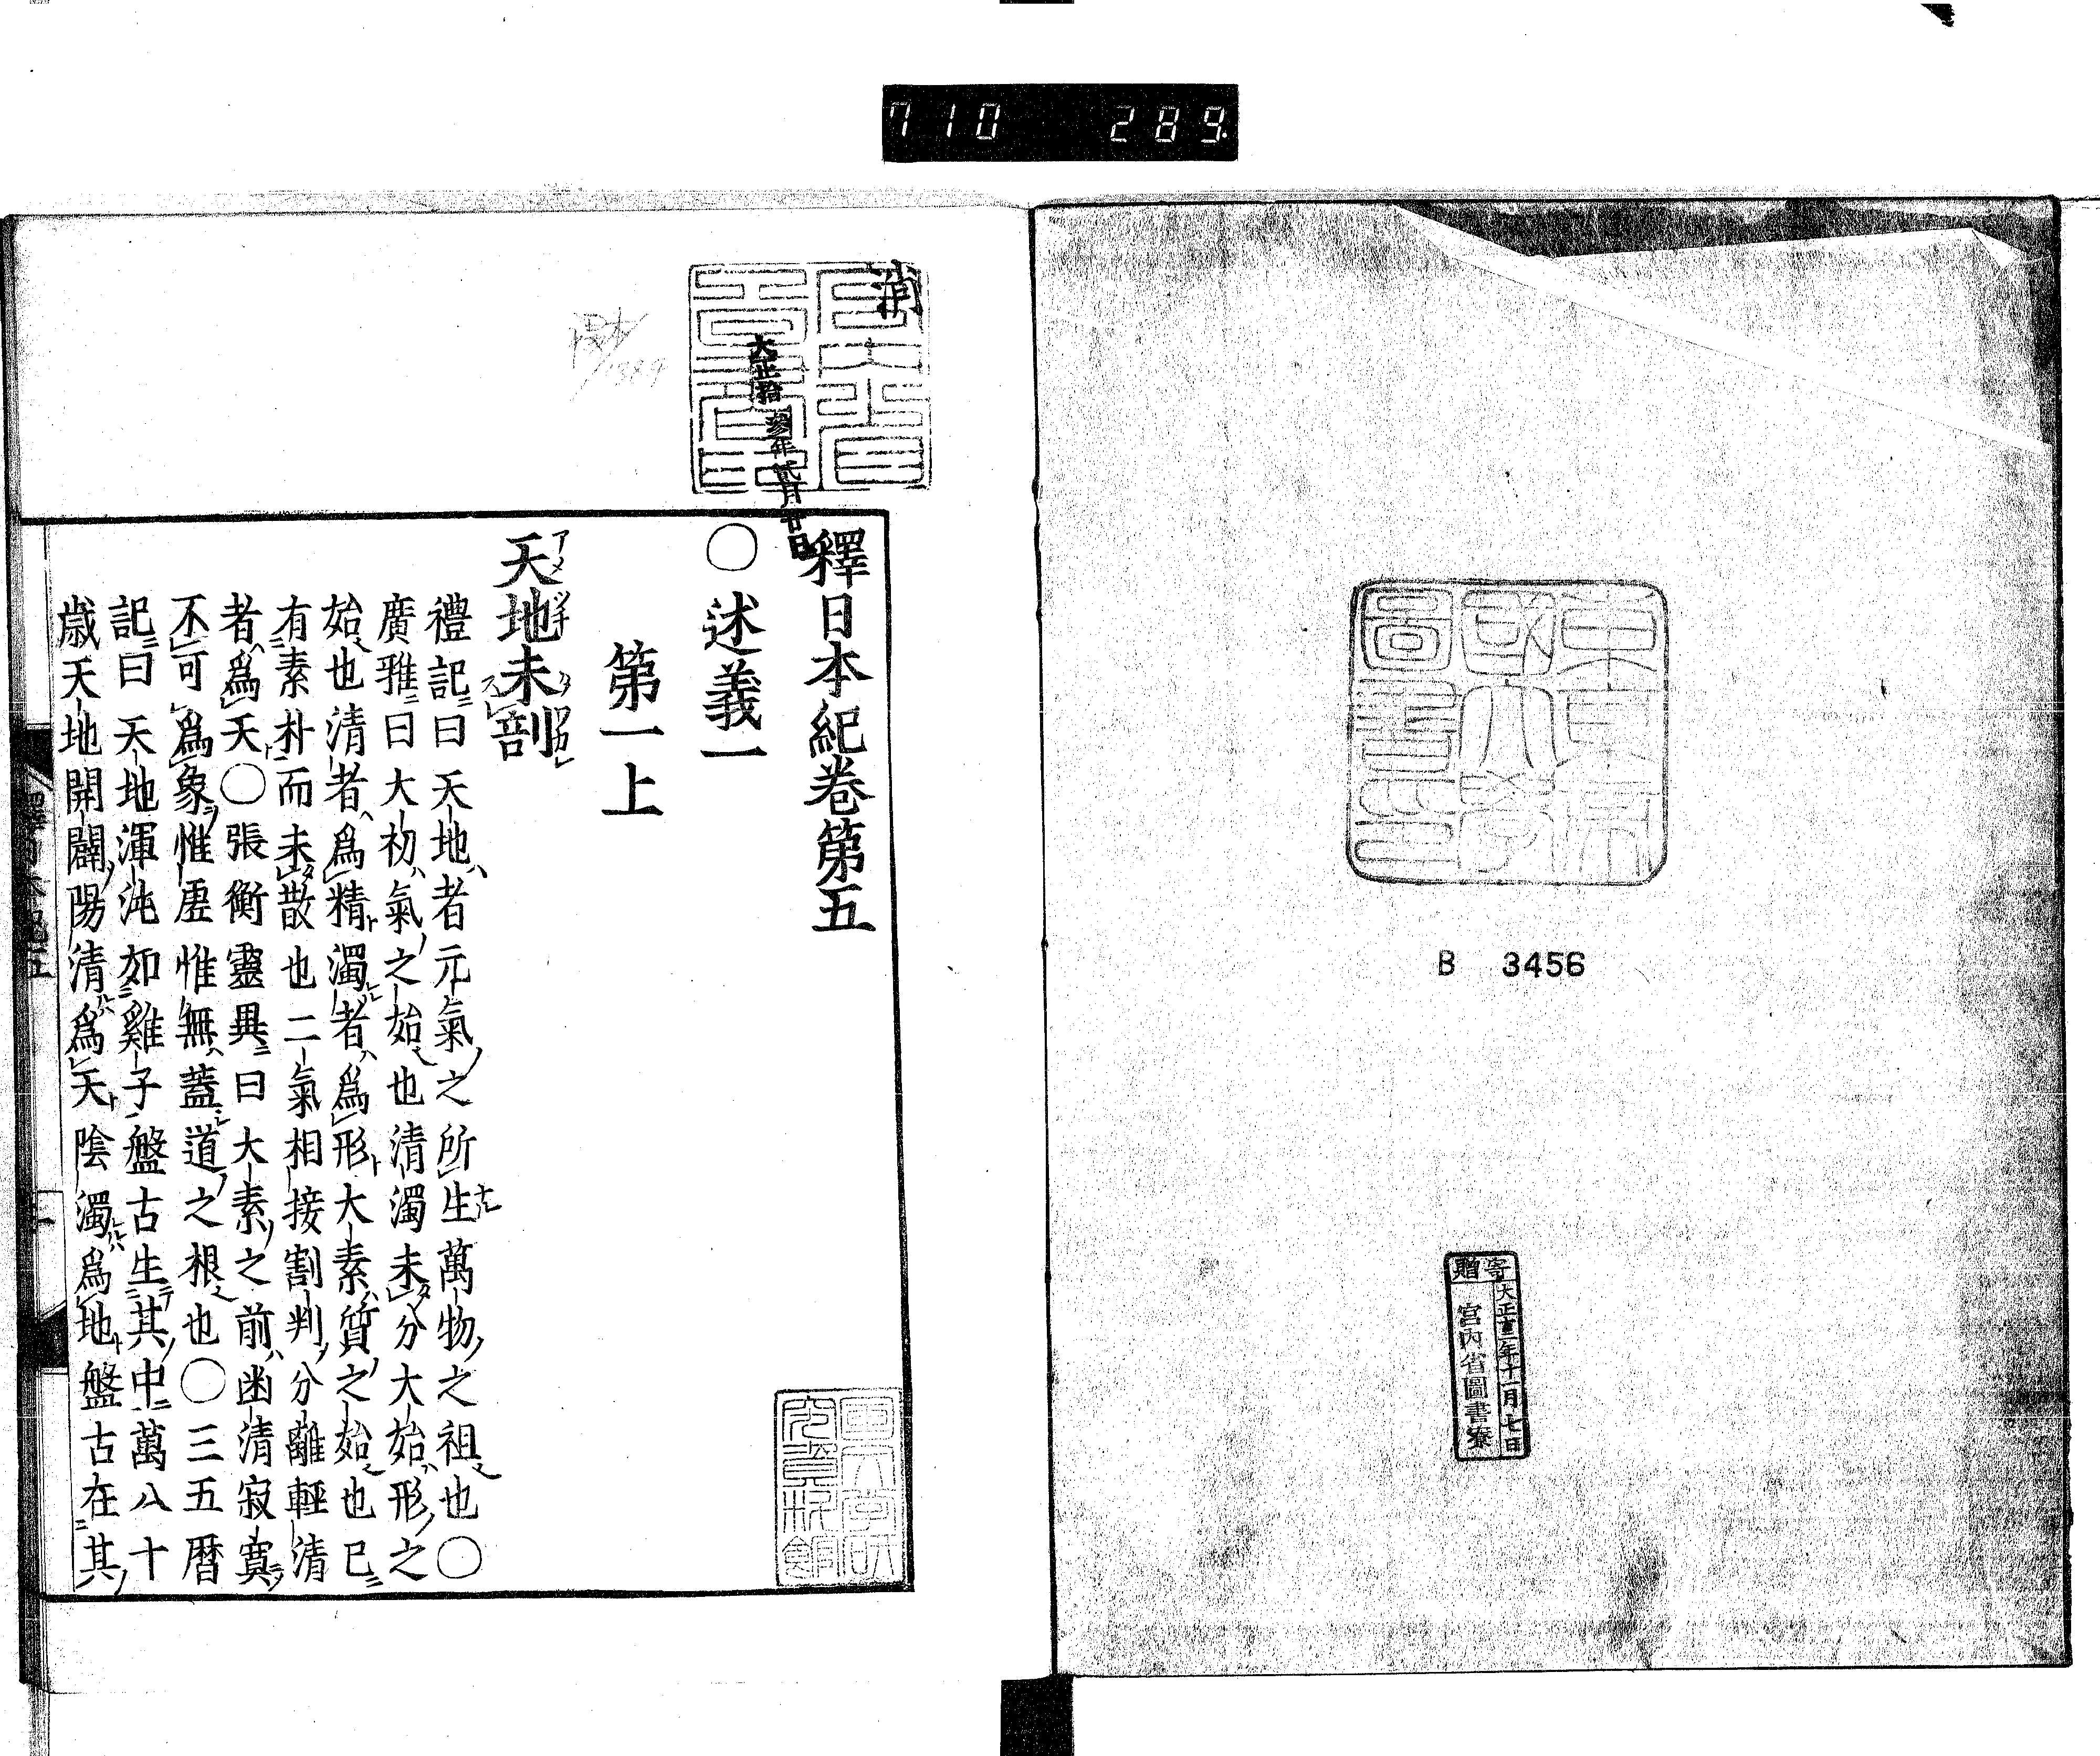 710 289
東京
帝國大學
圖書印
B 3456
寄贈
大正十二年十一月七日
宮內省圖書寮
消
大正拾參年貳月廿日
釋日本紀卷第五
○述義一
第一上
天地未剖
禮記曰天地者元氣之所生萬物之祖也○
廣雅曰大初氣之始也清濁未分大始形之
始也清者爲精濁者爲形大素質之始也已
有素朴而未散也二氣相接割判分離輕清
者爲天○張衡靈異曰大素之前幽清寂寞
不可爲象惟虛惟無蓋道之根也○三五曆
記曰天地渾沌如雞子盤古生其中萬八十
歲天地開闢陽清爲天陰濁爲地盤古在其